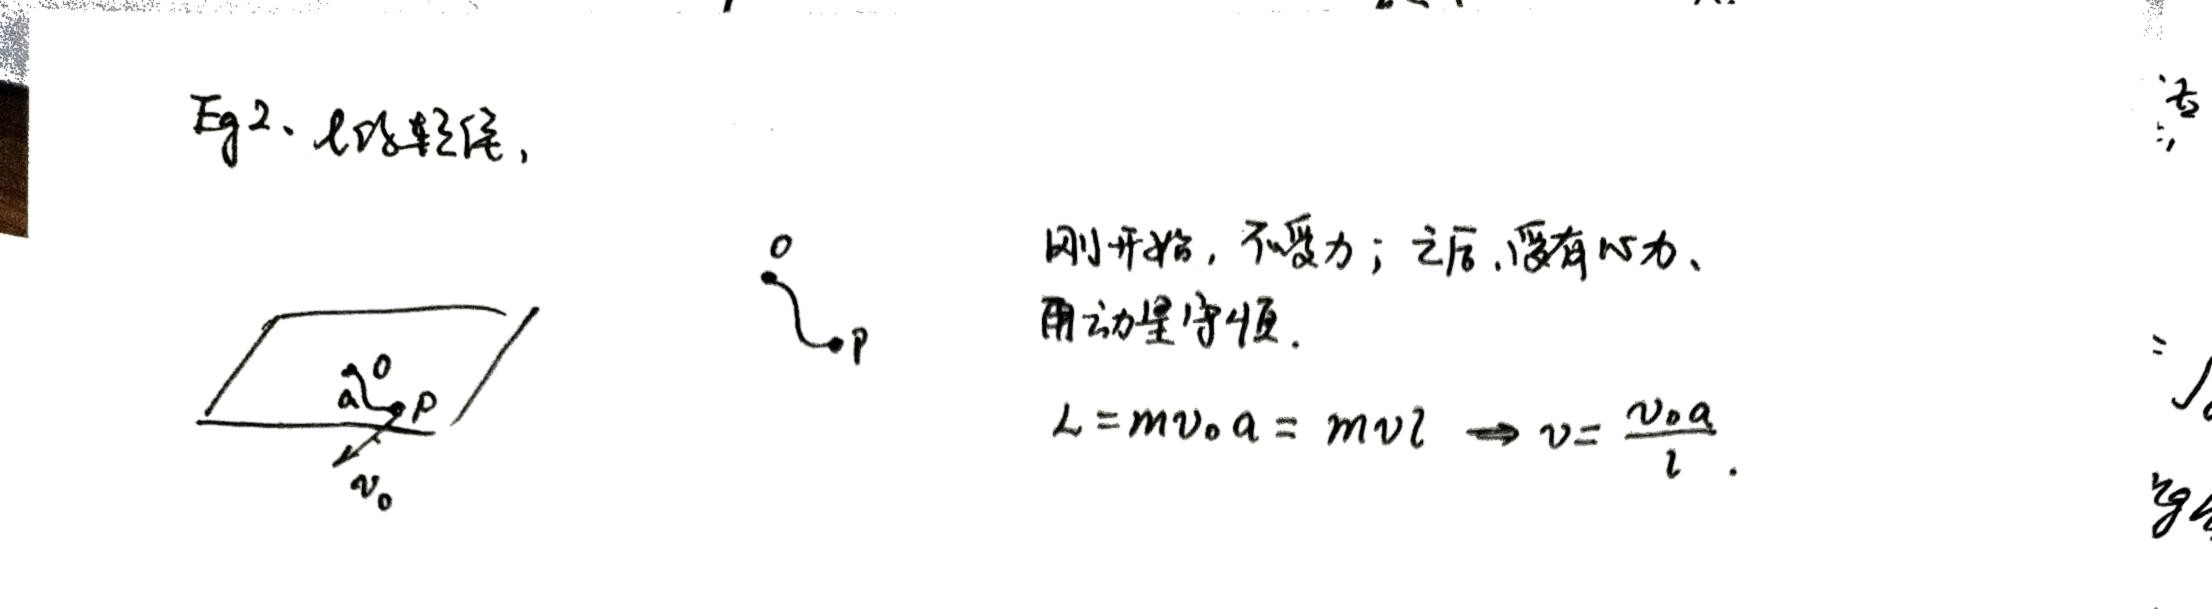 Eg2、l的轻绳,
O
P
a
O
P
v₀
刚开始, 不受力; 之后、受有心力、
用动量守恒.
L = mv₀a = mvl → v = v₀a / l .